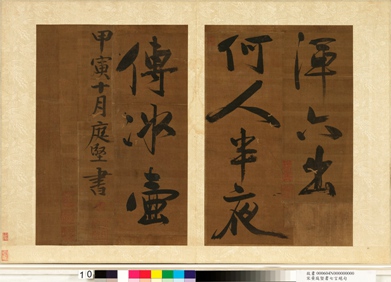 渾六出
何人半夜
傳冰壺
甲寅十月庭堅書
10